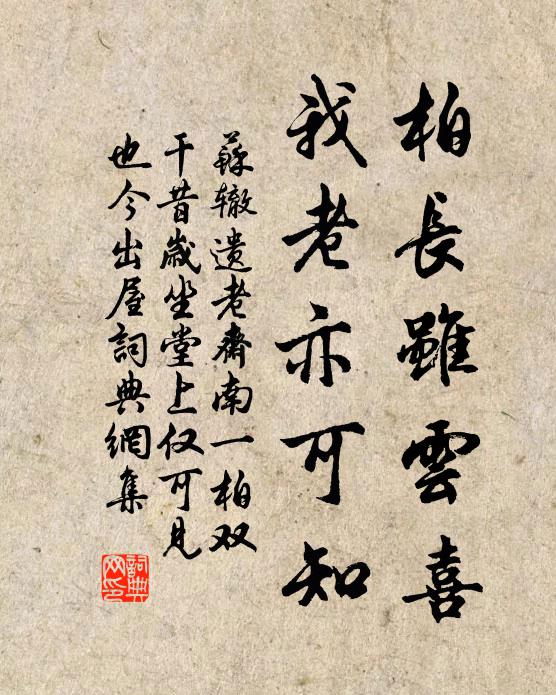 柏長雖雲喜
我老亦可知
蘇辙遗老齋南一柏双
干昔歲坐堂上仅可見
也今出屋詞典網集
詞典
网印